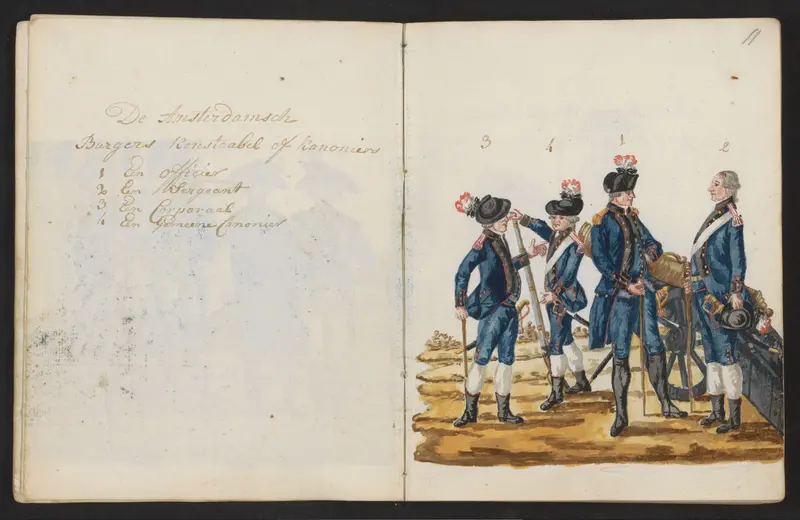 De Amsterdamsch
Burgers Konstabel of Kanoniers
1 En officier
2 En Sergeant
3 En Corporaal
4 En Gemeene Canonier
11
3 4 1 2